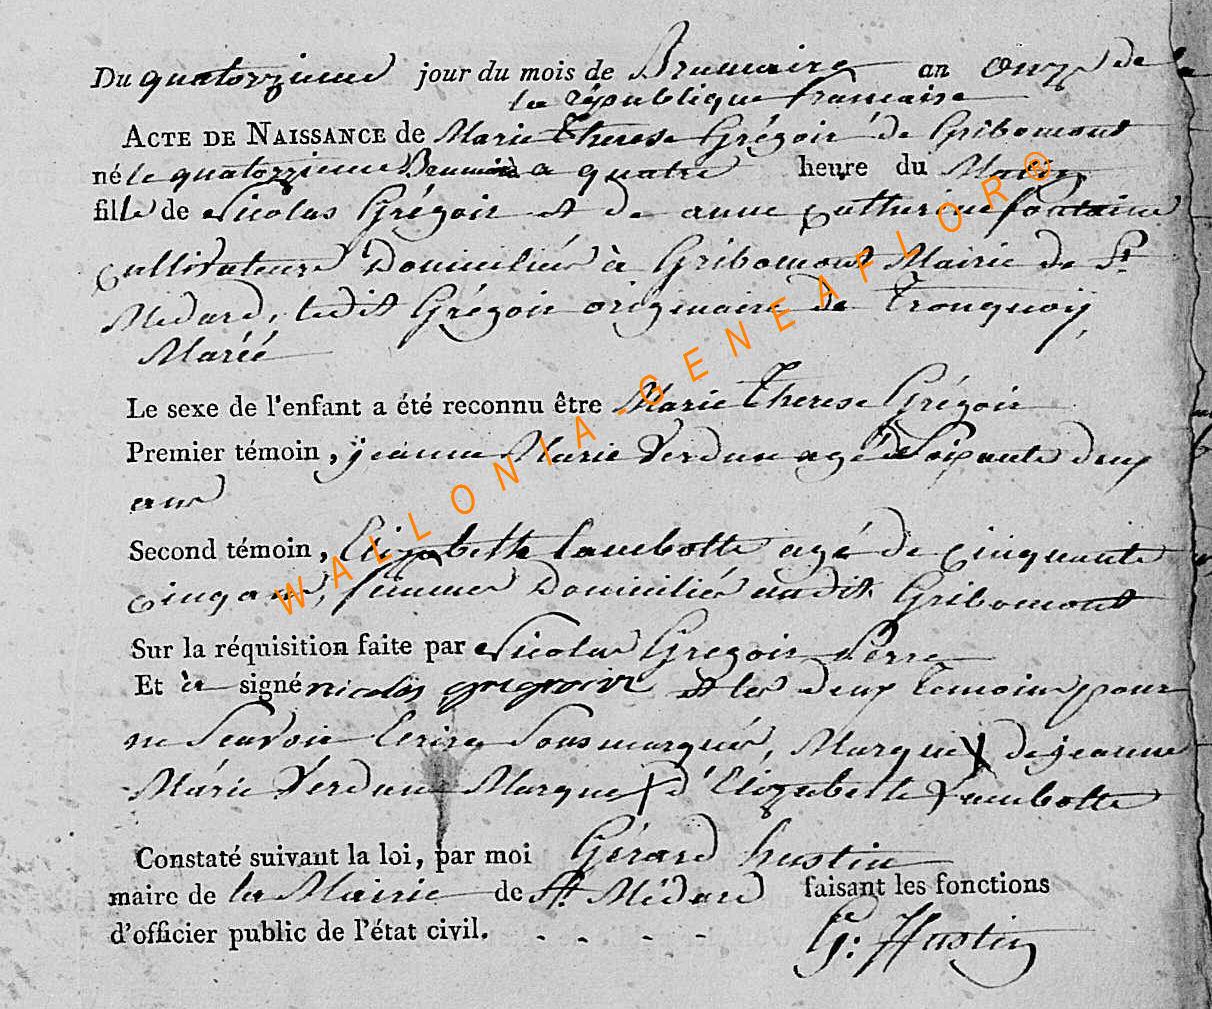 Du quatorzieme jour du mois de Brumaire an onze de la
la république francaise
ACTE DE NAISSANCE de Marie Therese Grégoir de Gribomont
né le quatorzieme Brumaire a quatre heure du Matin
fille de Nicolas Grégoir et de anne catherine fontaine
cultivateurs Domiciliés à Gribomont Mairie de St
Médard, ledit Grégoir originaire de Tronquoy
Mariés
Le sexe de l'enfant a été reconnu être Marie Therese Grégoir
Premier témoin, jeanne Marie Verdun agé de Soixante deux
ans
Second témoin, Elizabette Lambotte agé de cinquante
cinq ans, femmes Domiciliés audit Gribomont
Sur la réquisition faite par Nicolas Gregoir Perre
Et a signé nicolas gregroire et les deux temoins pour
ne Scavoir Ecrire Sousmarqués, Marque X de jeanne
Marie Verdun Marque X d'Elizabette Lambotte
Constaté suivant la loi, par moi Gérard hustin
maire de la Mairie de St. Médard faisant les fonctions
d'officier public de l'état civil. - - - -
G: Hustin
WALLONIA-GENEAFLOR®